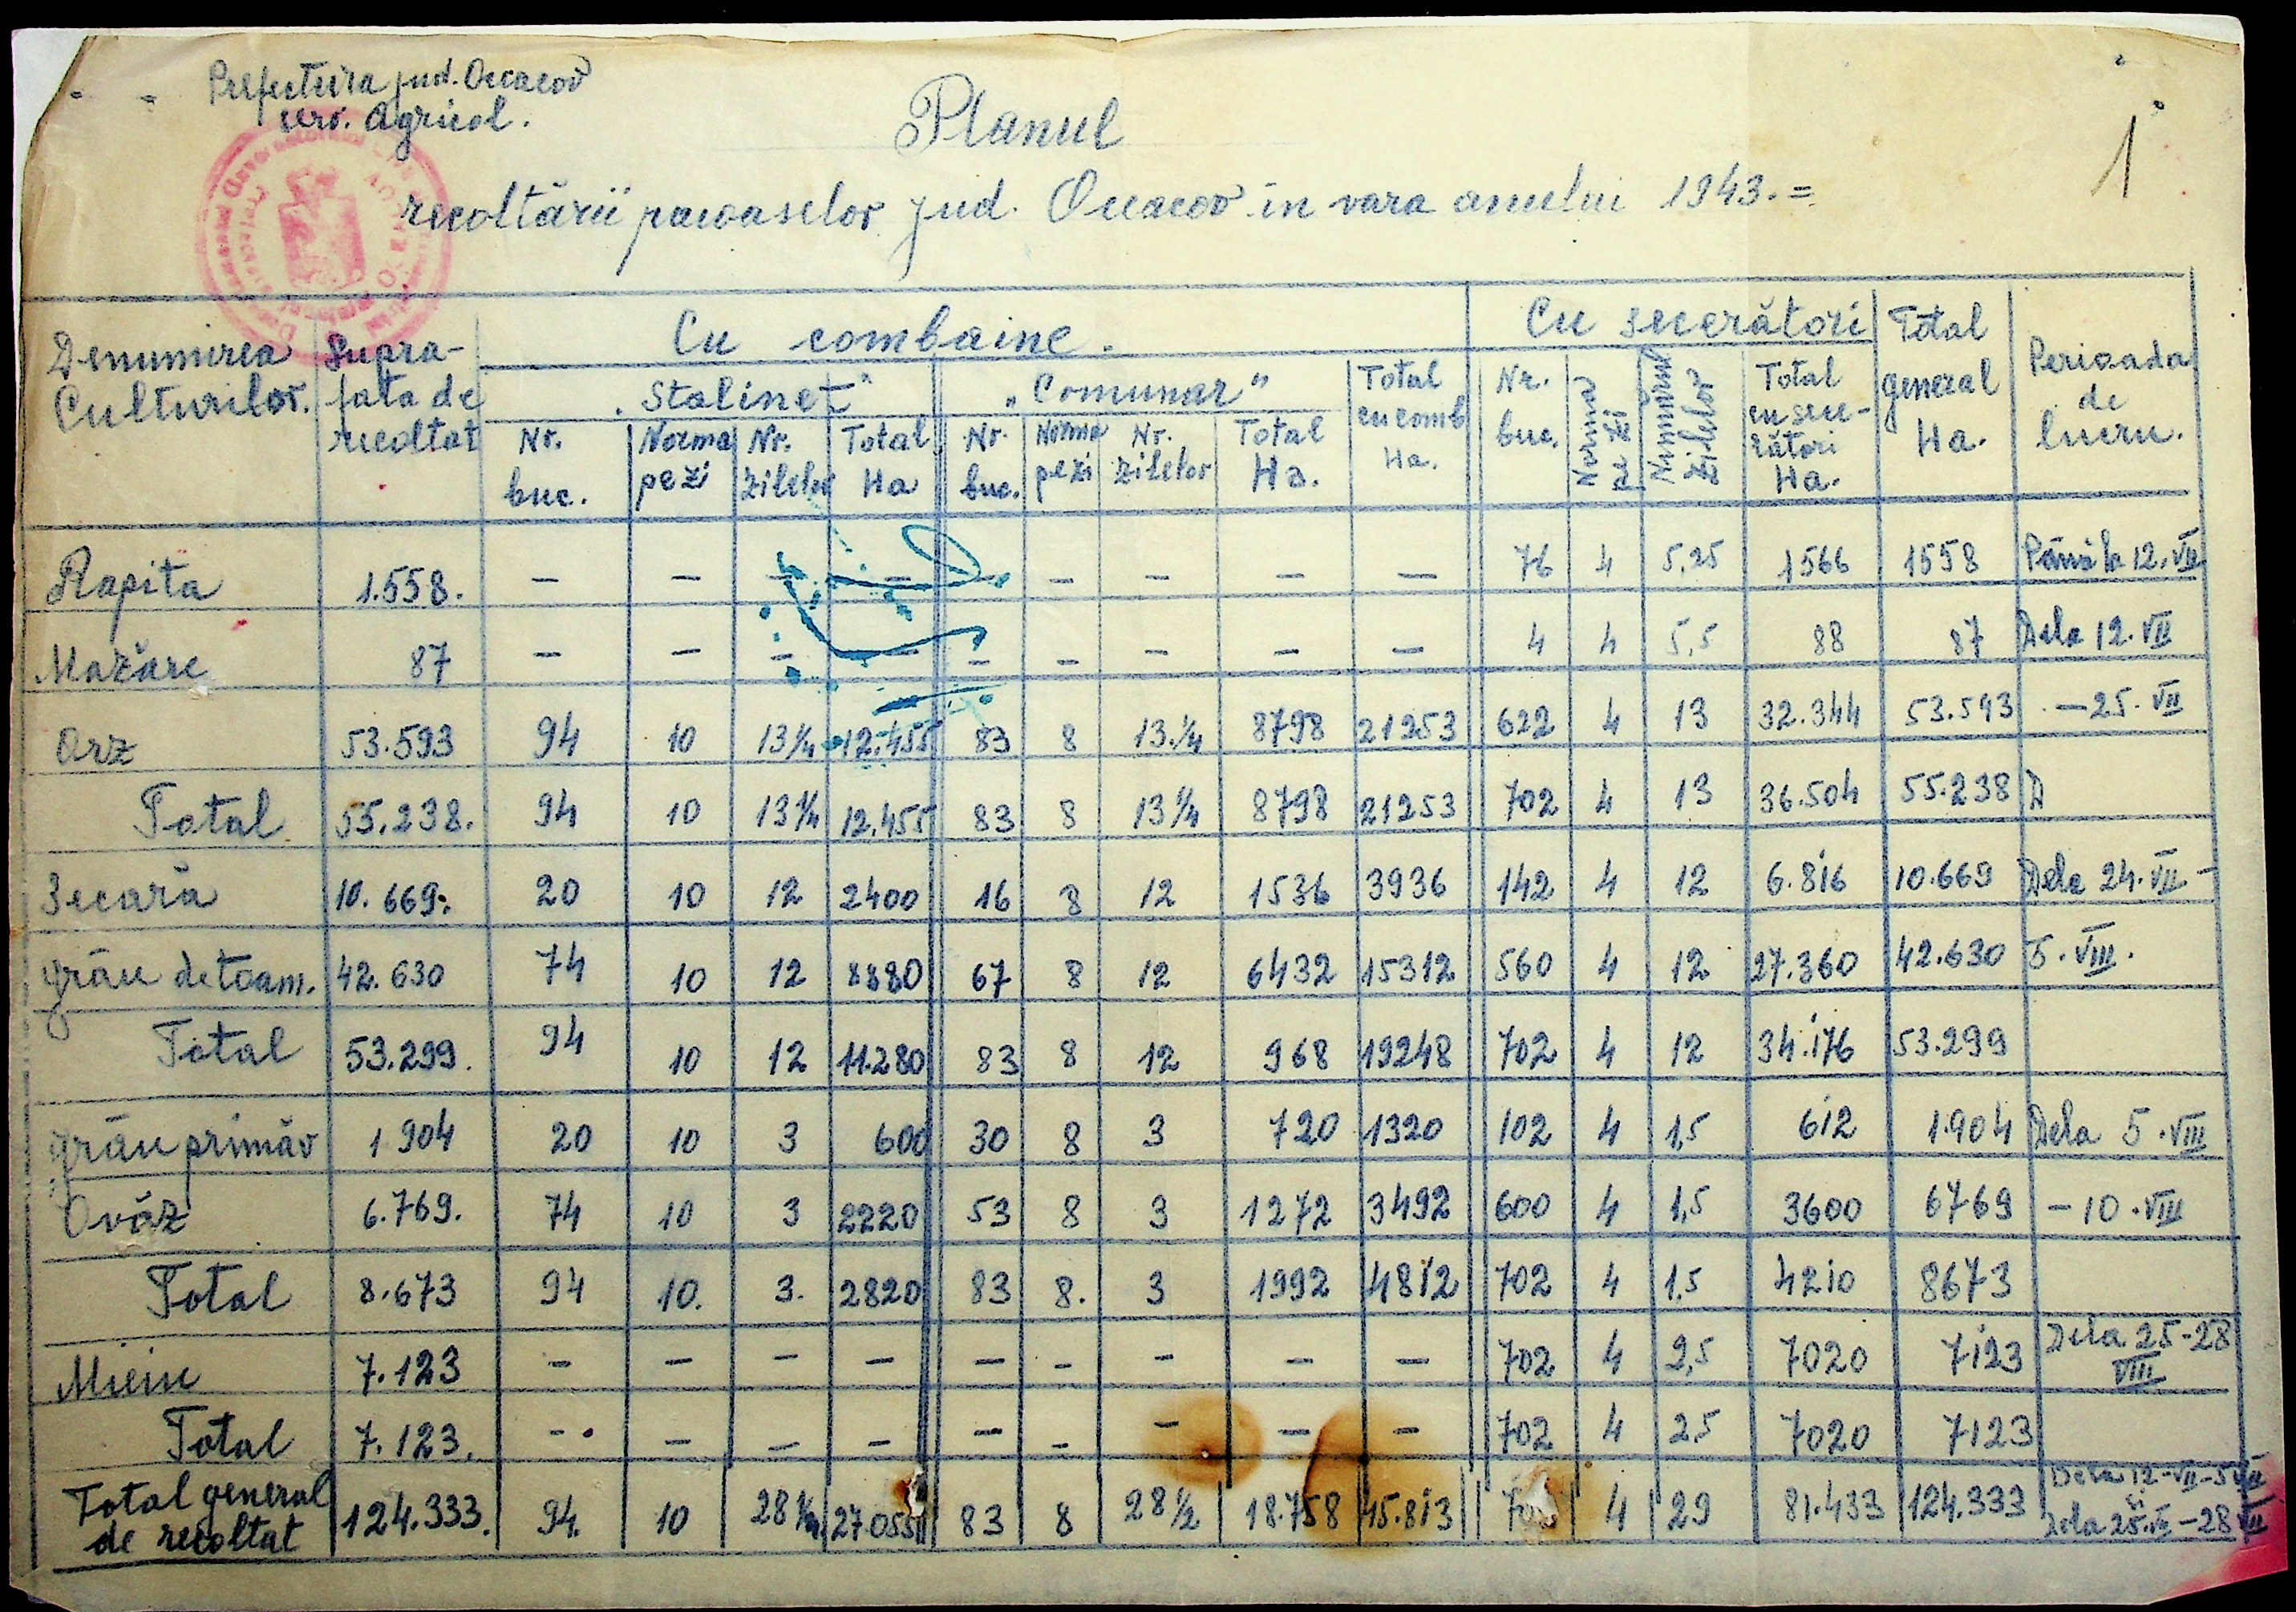 Prefectura jud. Oceacov
serv. Agricol.
1
Planul
recoltării paioaselor jud. Oceacov în vara anului 1943.=
Denumirea Culturilor.
Suprafata de recoltat
Cu combaine.
Cu secerători
Total general Ha.
Perioada de lucru.
„Stalinet"
„Comunar"
Total cu comb Ha.
Nr. buc.
Norma pe zi
Numărul Zilelor
Total cu secerători Ha.
Nr. buc.
Norma pe zi
Nr. zilelor
Total Ha
Nr. buc.
Norma pe zi
Nr. zilelor
Total Ha.
Rapita 1.558. — — — — — — — — — 76 4 5,25 1566 1558 Până la 12.VII
Mazăre 87 — — — — — — — — — 4 4 5,5 88 87 Dela 12.VII
Orz 53.593 94 10 13¼ 12.455 83 8 13.¼ 8798 21253 622 4 13 32.344 53.593 —25.VII
Total 55.238. 94 10 13¼ 12.455 83 8 13¼ 8798 21253 702 4 13 36.504 55.238 D
Secară 10.669. 20 10 12 2400 16 8 12 1536 3936 142 4 12 6.816 10.669 Dela 24.VII-
grâu de toam. 42.630 74 10 12 8880 67 8 12 6432 15312 560 4 12 27.360 42.630 5.VIII.
Total 53.299. 94 10 12 11.280 83 8 12 968 19248 702 4 12 34.176 53.299
grâu primăv 1904 20 10 3 600 30 8 3 720 1320 102 4 1,5 612 1.904 Dela 5.VIII
Ovăz 6.769. 74 10 3 2220 53 8 3 1272 3492 600 4 1,5 3600 6769 -10.VIII
Total 8.673 94 10. 3. 2820 83 8. 3 1992 4812 702 4 1,5 4210 8673
Meiu 7.123 — — — — — — — — — 702 4 2,5 7020 7123 Dela 25-28 VIII
Total 7.123. — — — — — — — — — 702 4 25 7020 7123
Total general de recoltat 124.333. 94 10 28¼ 27.055 83 8 28½ 18.758 45.813 4 29 81.433 124.333 Dela 12-VII-5